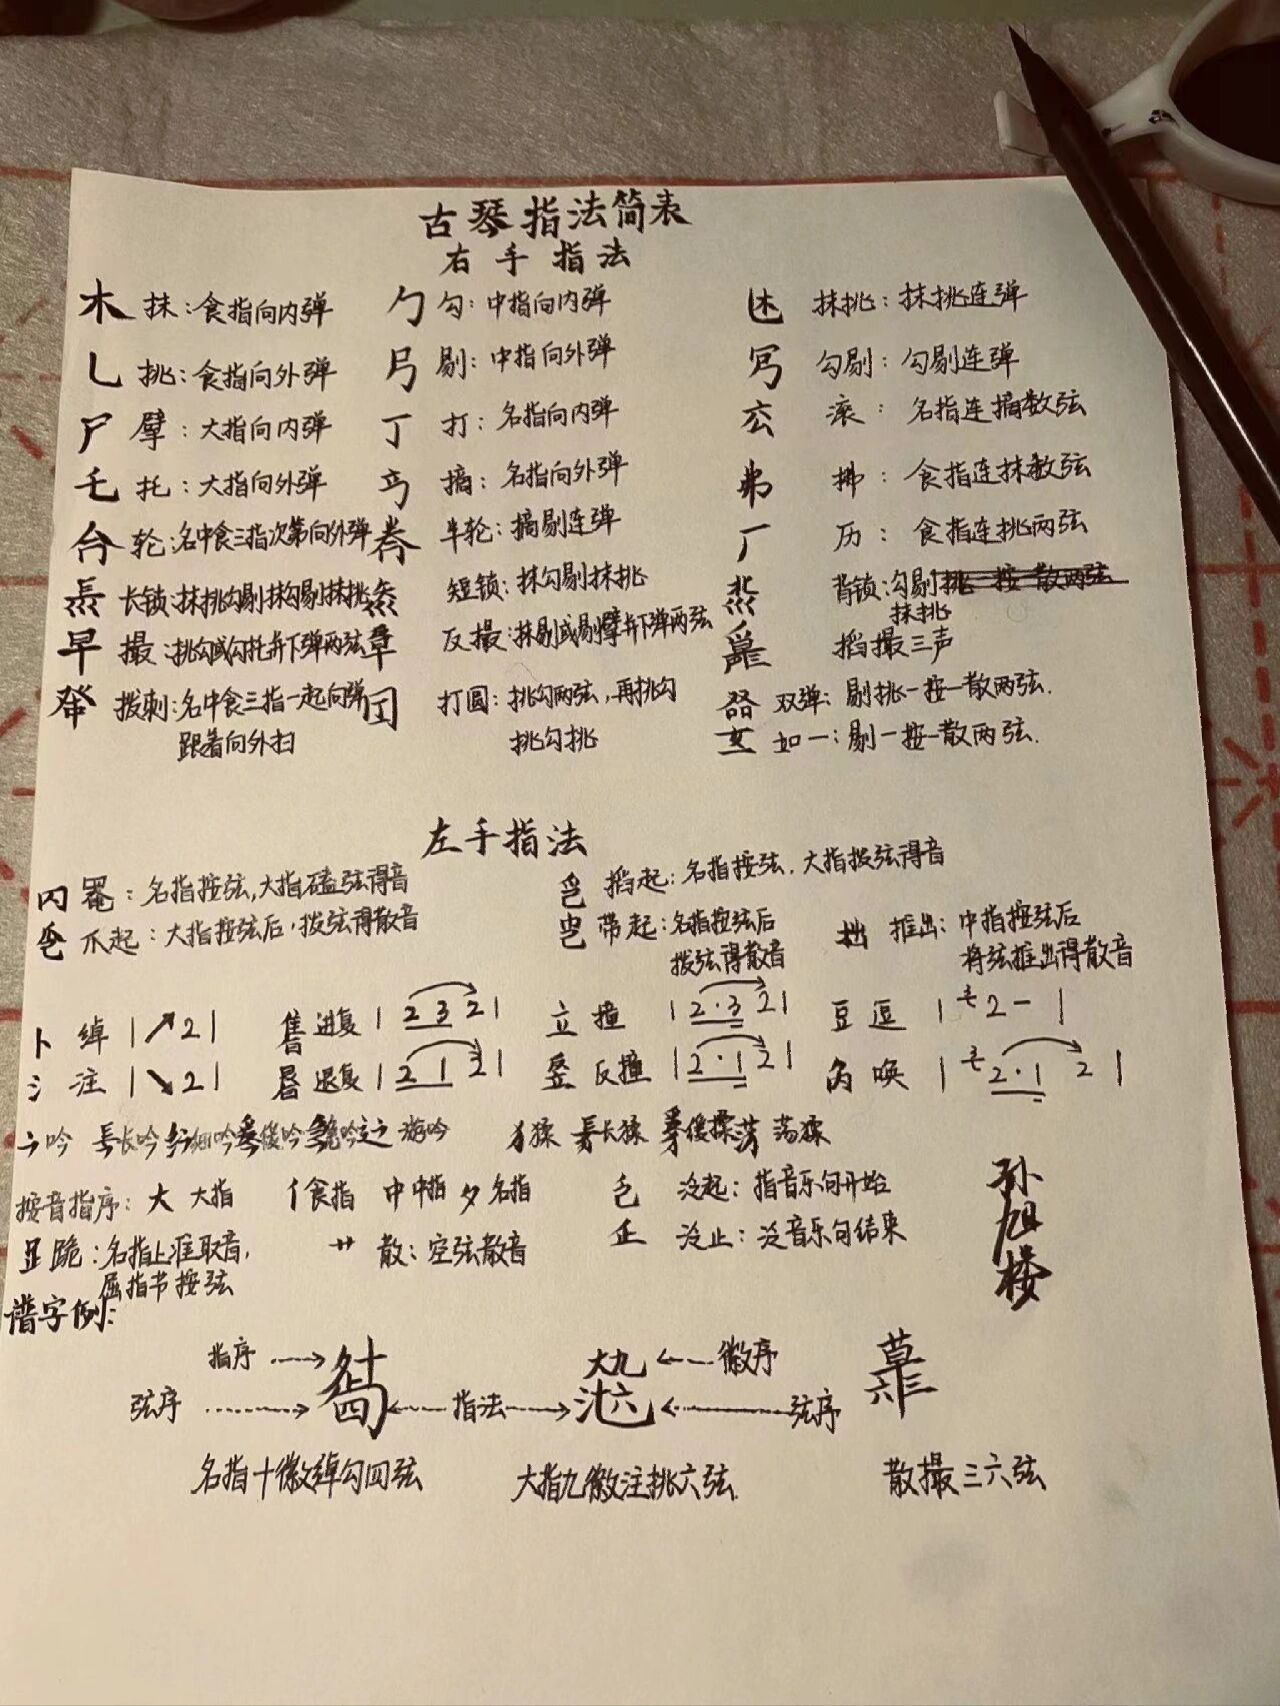 古琴指法简表
右手指法
木 抹：食指向内弹 勹 勾：中指向内弹 抹挑：抹挑连弹
乚 挑：食指向外弹 剔：中指向外弹 勾剔：勾剔连弹
尸 擘：大指向内弹 丁 打：名指向内弹 滚：名指连摘数弦
乇 托：大指向外弹 摘：名指向外弹 弗 拂：食指连抹数弦
轮：名中食三指次第向外弹 半轮：摘剔连弹 厂 历：食指连挑两弦
长锁：抹挑勾剔抹勾剔抹挑 短锁：抹勾剔抹挑 背锁：勾剔挑一按一散两弦
抹挑
早 撮：挑勾或勾托并下弹两弦 反撮：抹剔或剔擘并下弹两弦 掐撮三声
拨刺：名中食三指一起向弹 打圆：挑勾两弦，再挑勾 双弹：剔挑一按一散两弦.
跟着向外扫 挑勾挑 如一：剔一按一散两弦.
左手指法
罨：名指按弦，大指磕弦得音 掐起：名指按弦.大指拨弦得音
爪起：大指按弦后，拨弦得散音 带起：名指按弦后 推出：中指按弦后
拨弦得散音 将弦推出得散音
卜 绰 |↗2| 进复 |2 3 2| 立 撞 |2·3 2| 豆 逗 | 2 – |
氵 注 |↘2| 退复 |2 1 2| 反撞 |2·1 2| 唤 | 2·1 2 |
吟 长吟 细吟 缓吟 急吟 游吟 猱 长猱 缓猱 荡猱
按音指序：大 大指 亻食指 中中指 夕名指 泛起：指音乐句开始
跪：名指上准取音， 艹 散：空弦散音 泛止：泛音乐句结束
屈指节按弦
孙旭楼
谱字例：
指序 大九 徽序
弦序 指法 弦序
名指十徽绰勾四弦 大指九徽注挑六弦. 散撮三六弦